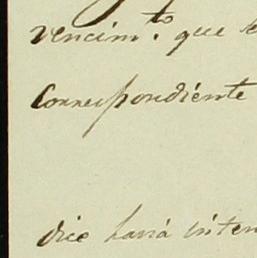 vencim.to que
Correspondiente
dice hará